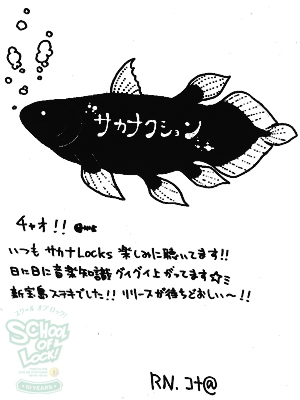 サカナクション
チャオ!!
いつも サカナLocks 楽しみに聴いてます!!
日に日に音楽知識 グイグイ上がってます☆ミ
新宝島ステキでした!! リリースが待ちどおしい〜!!
スクール オブ ロック!
SCHOOL
OF
LOCK!
10 YEARS
RN. コナ@